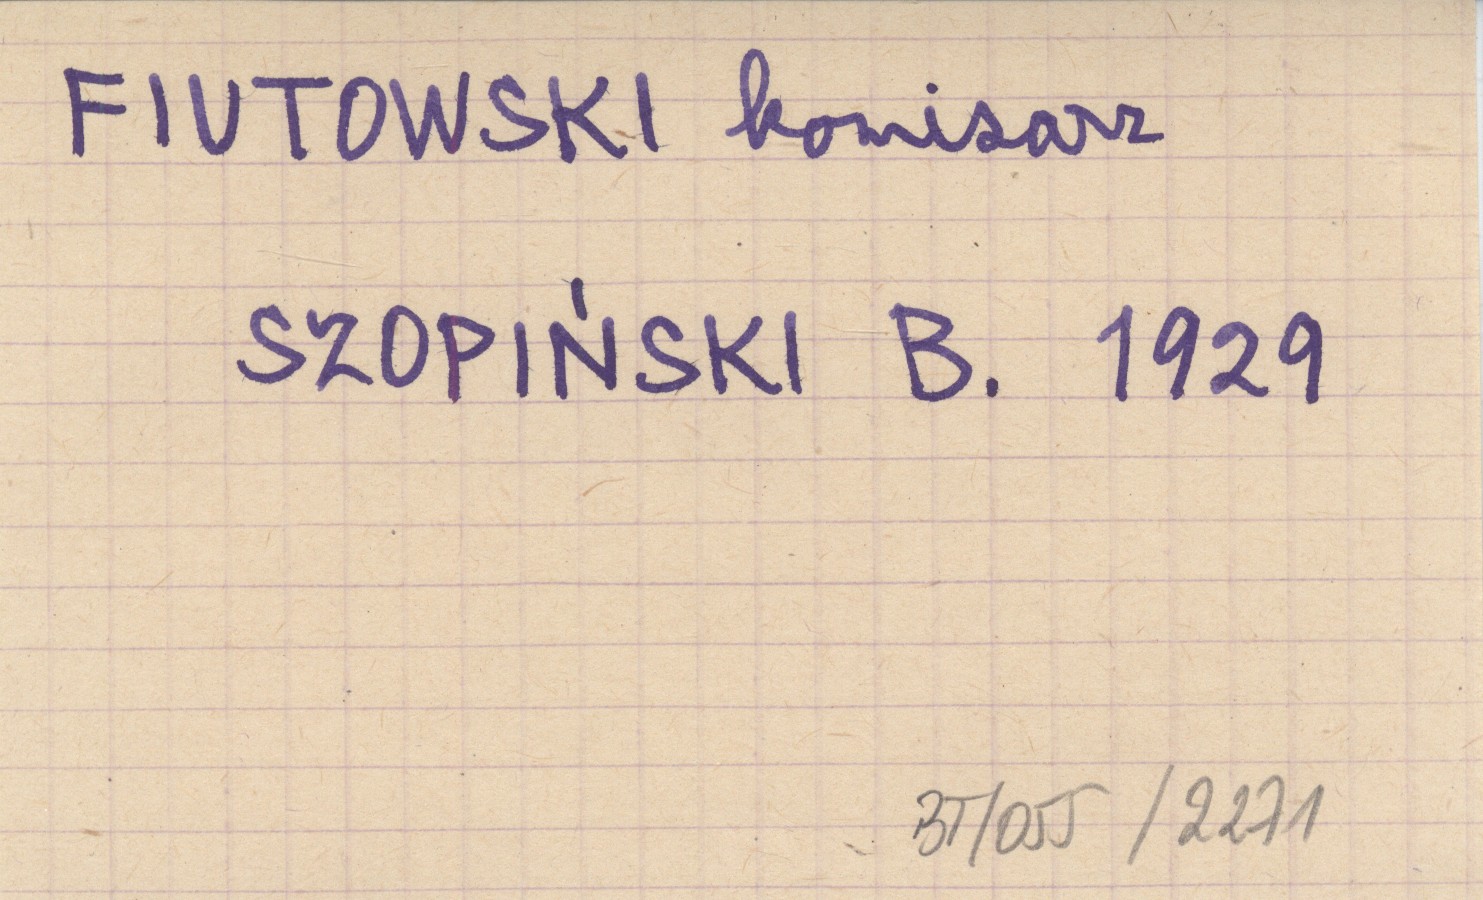 FIUTOWSKI komisarz
SZOPIŃSKI B. 1929
BT/055 /2271